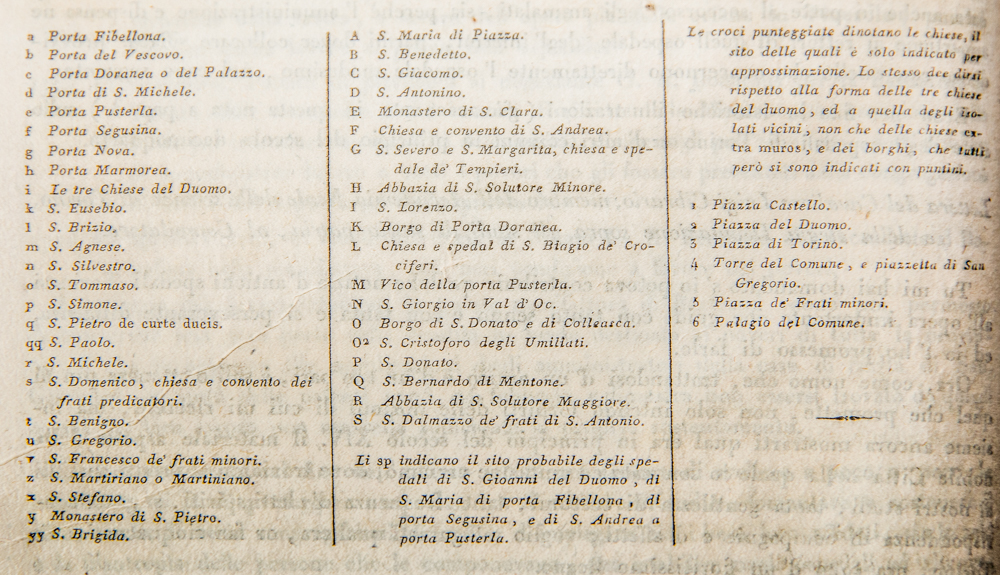 a Porta Fibellona.
b Porta del Vescovo.
c Porta Doranea o del Palazzo.
d Porta di S. Michele.
e Porta Pusterla.
f Porta Segusina.
g Porta Nova.
h Porta Marmorea.
i Le tre Chiese del Duomo.
k S. Eusebio.
l S. Brizio.
m S. Agnese.
n S. Silvestro.
o S. Tommaso.
p S. Simone.
q S. Pietro de curte ducis.
qq S. Paolo.
r S. Michele.
s S. Domenico, chiesa e convento dei
frati predicatori.
t S. Benigno.
u S. Gregorio.
v S. Francesco de' frati minori.
z S. Martiriano o Martiniano.
x S. Stefano.
y Monastero di S. Pietro.
yy S. Brigida.
A S. Maria di Piazza.
B S. Benedetto.
C S. Giacomo.
D S. Antonino.
E Monastero di S. Clara.
F Chiesa e convento di S. Andrea.
G S. Severo e S. Margarita, chiesa e spe-
dale de' Tempieri.
H Abbazia di S. Solutore Minore.
I S. Lorenzo.
K Borgo di Porta Doranea.
L Chiesa e spedal di S. Biagio de' Cro-
ciferi.
M Vico della porta Pusterla.
N S. Giorgio in Val d' Oc.
O Borgo di S. Donato e di Colleasca.
O² S. Cristoforo degli Umiliati.
P S. Donato.
Q S. Bernardo di Mentone.
R Abbazia di S. Solutore Maggiore.
S S. Dalmazzo de' frati di S. Antonio.
Li sp indicano il sito probabile degli spe-
dali di S. Gioanni del Duomo, di
S. Maria di porta Fibellona, di
porta Segusina, e di S. Andrea a
porta Pusterla.
Le croci punteggiate dinotano le chiese, il
sito delle quali è solo indicato per
approssimazione. Lo stesso dee dirsi
rispetto alla forma delle tre chiese
del duomo, ed a quella degli iso-
lati vicini, non che delle chiese ex-
tra muros, e dei borghi, che tutti
però si sono indicati con puntini.
1 Piazza Castello.
2 Piazza del Duomo.
3 Piazza di Torino.
4 Torre del Comune, e piazzetta di San
Gregorio.
5 Piazza de' Frati minori.
6 Palagio del Comune.